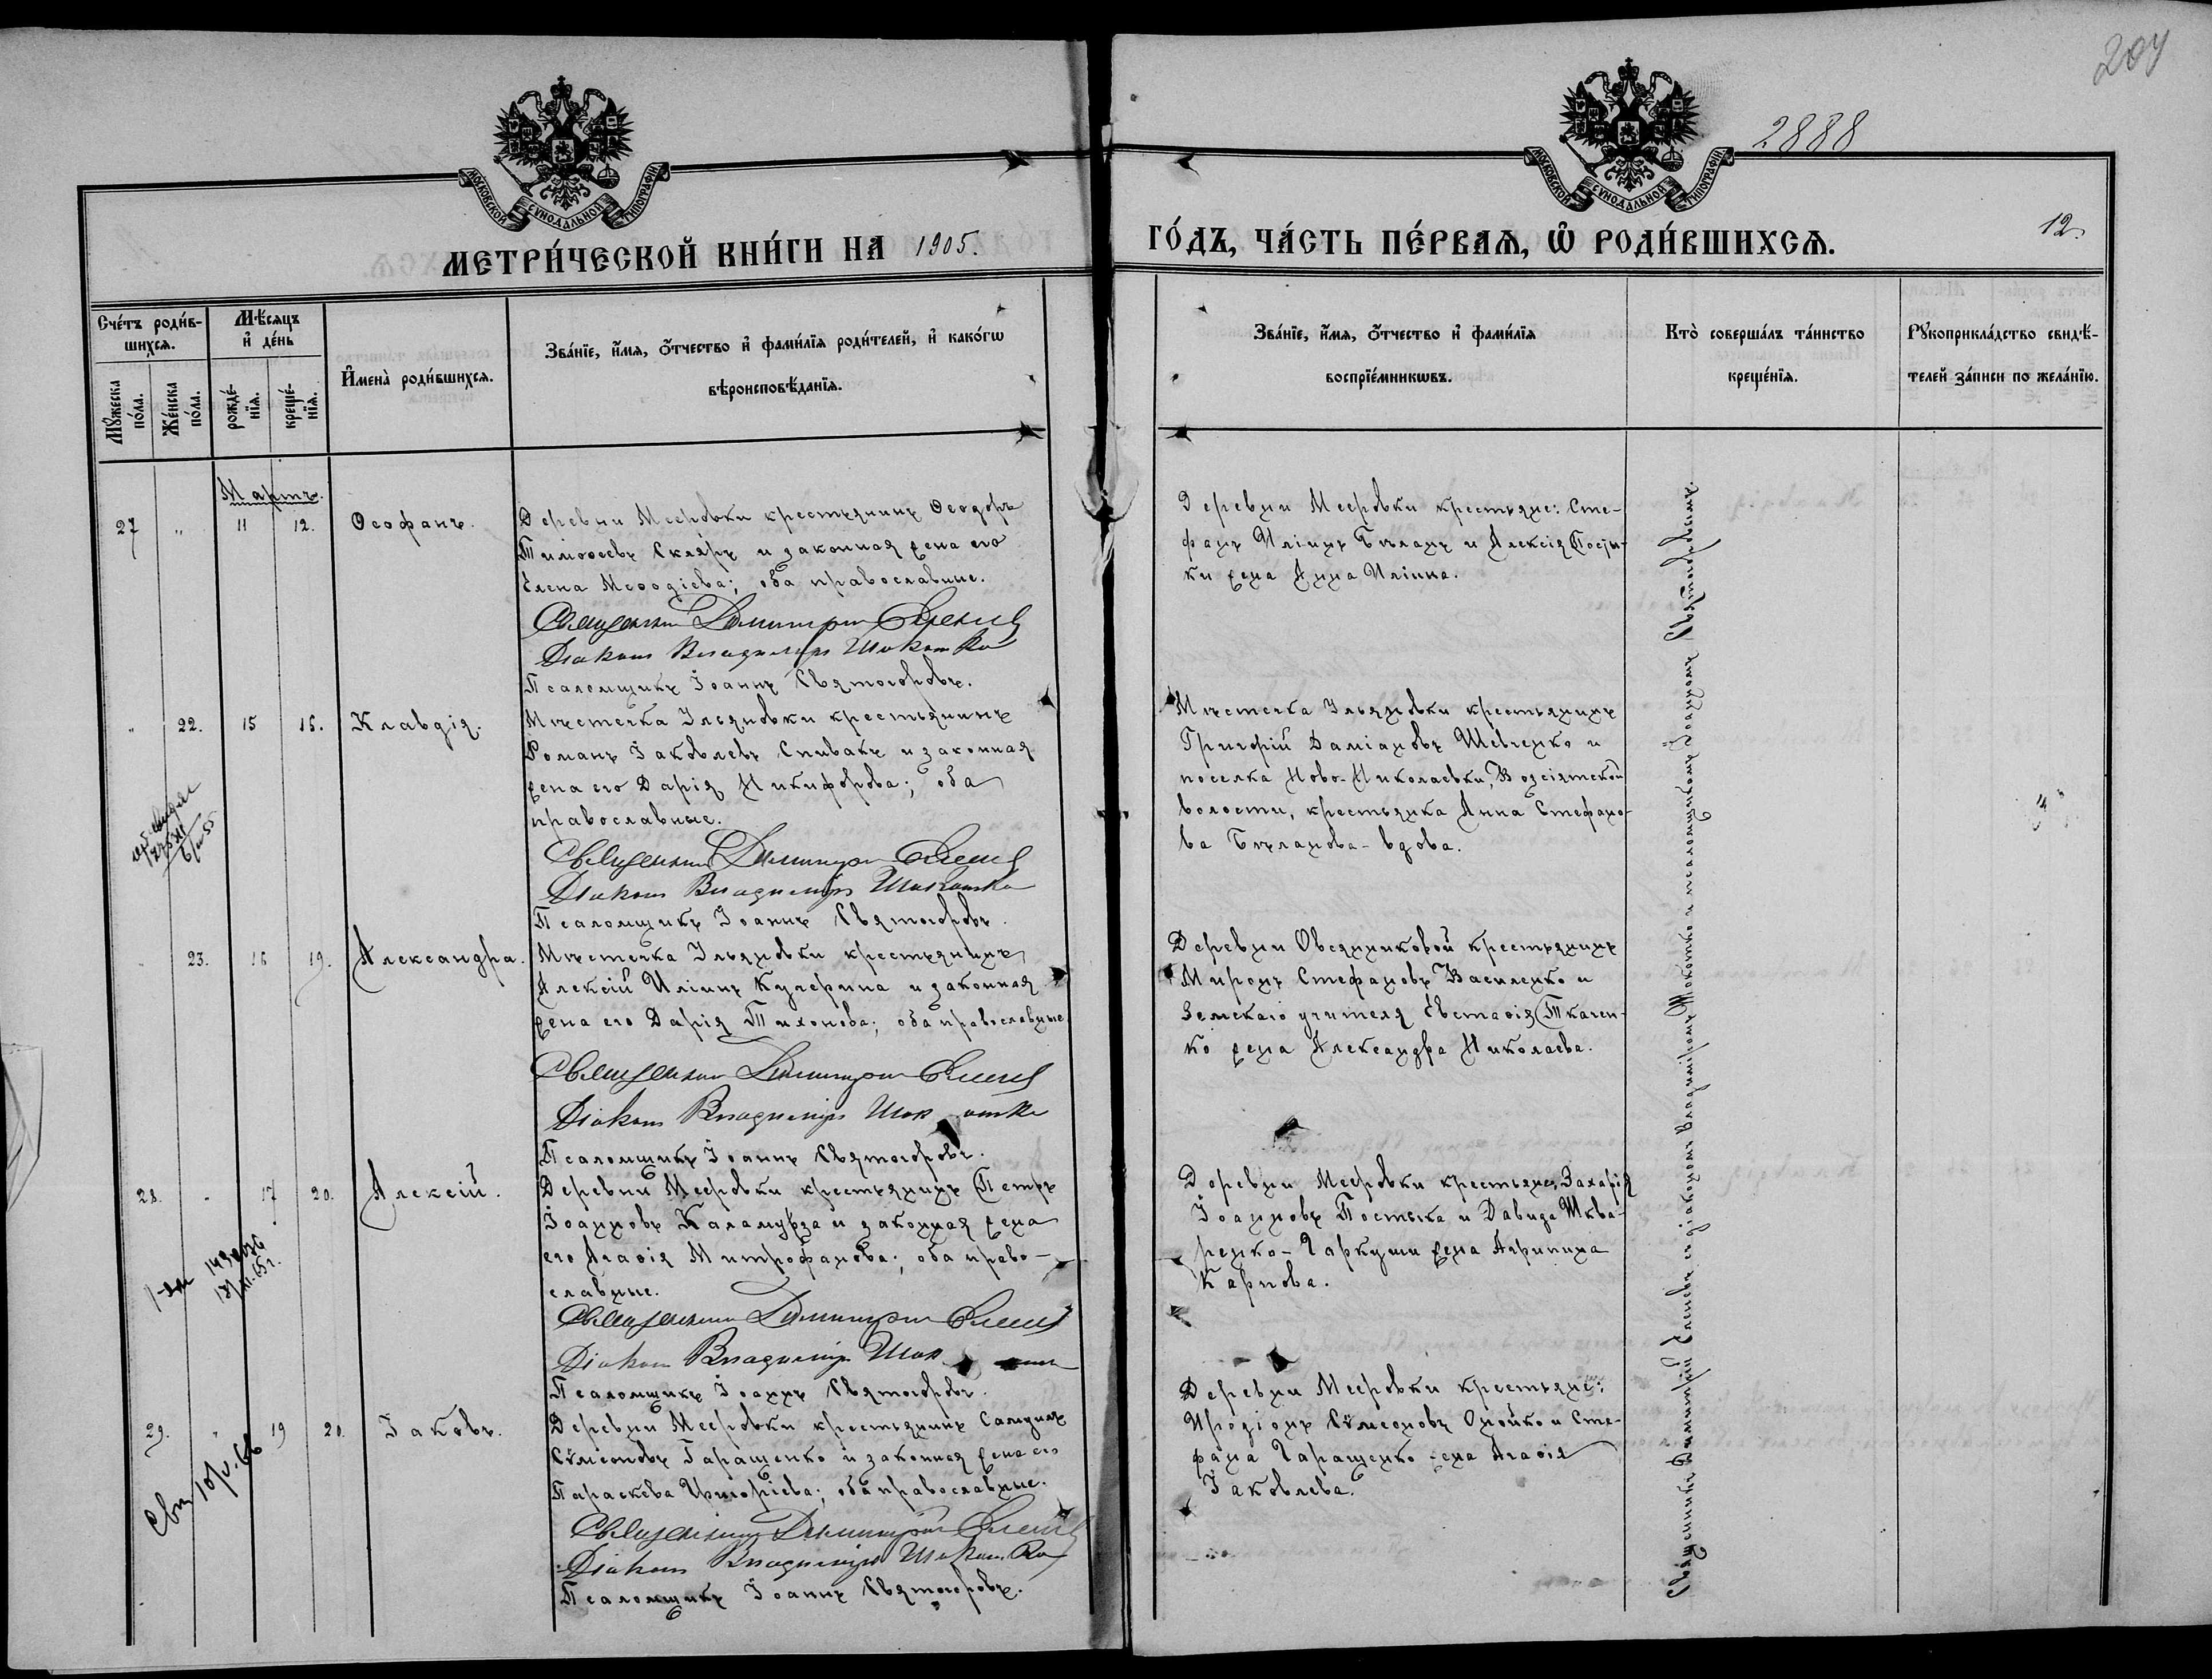 204
2888
12.
МОСКОВСКОЙ СѴНОДАЛЬНОЙ ТИПОГРАФІИ
МОСКОВСКОЙ СѴНОДАЛЬНОЙ ТИПОГРАФІИ
МЕТРИ́ЧЕСКОЙ КНИ́ГИ НА 1905.
ГО́ДЪ, ЧА́СТЬ ПЕ́РВАѦ, Ѽ РОДИ́ВШИХСѦ.
Сче́тъ роди́в-
шихсѧ.
Мꙋ́жеска по́ла.
Же́нска по́ла.
Мѣ́сѧцъ
и҆ де́нь
рожде́-
нїѧ.
креще́-
нїѧ.
И҆мена̀ роди́вшихсѧ.
Зва́нїе, и҆́мѧ, ѻ҆́тчество и҆ фами́лїѧ роди́телей, и҆ како́гѡ
вѣроисповѣ́данїѧ.
Зва́нїе, и҆́мѧ, ѻ҆́тчество и҆ фами́лїѧ
воспрїе́мникѡвъ.
Кто̀ соверша́лъ та́инство
креще́нїѧ.
Рꙋкоприкла́дство свидѣ́-
телей за́писи по жела́нїю.
Мартъ.
27 " 11 12. Ѳеофанъ.
Деревни Мееровки крестьянинъ Ѳеодоръ
Тимоѳеевъ Скляръ и законная жена его
Елена Меѳодіева; оба православные.
Священникъ Димитрій Еленевъ
Діаконъ Владиміръ Шокотко
Псаломщикъ Іоаннъ Святогоровъ.
Деревни Мееровки крестьяне: Сте-
фанъ Иліинъ Бѣланъ и Алексія Посты-
ки жена Анна Иліина.
" 22. 15 16. Клавдія.
Мѣстечка Ульяновки крестьянинъ
Романъ Іаковлевъ Спивакъ и законная
жена его Дарія Никифорова; оба
православные.
Священникъ Димитрій Еленевъ
Діаконъ Владиміръ Шокотко
Псаломщикъ Іоаннъ Святогоровъ.
Мѣстечка Ульяновки крестьянинъ
Григорій Даміановъ Шевченко и
поселка Ново-Николаевки, Возсіятской
волости, крестьянка Анна Стефано-
ва Бѣланова - вдова.
" 23. 16 19. Александра.
Мѣстечка Ульяновки крестьянинъ
Алексій Иліинъ Кучерина и законная
жена его Дарія Тихонова; оба православные.
Священникъ Димитрій Еленевъ
Діаконъ Владиміръ Шокотко
Псаломщикъ Іоаннъ Святогоровъ.
Деревни Овсянниковой крестьянинъ
Миронъ Стефановъ Василенко и
Земскаго учителя Евстаѳія Ткачен-
ко жена Александра Николаева.
28. " 17 20. Алексій.
Деревни Мееровки крестьянинъ Петръ
Іоанновъ Каламурза и законная жена
его Агаѳія Митрофанова; оба право-
славные.
Священникъ Димитрій Еленевъ
Діаконъ Владиміръ
Псаломщикъ Іоаннъ Святогоровъ.
Деревни Мееровки крестьяне: Захарія
Іоанновъ Постыка и Давида Шква-
ренко-Гаркуши жена Агрипина
Карпова.
29. " 19 20. Іаковъ.
Деревни Мееровки крестьянинъ Самуилъ
Сѵмеоновъ Гаращенко и законная жена его
Параскева Григоріева; оба православные.
Священникъ Димитрій Еленевъ
Діаконъ Владиміръ Шокотко
Псаломщикъ Іоаннъ Святогоровъ.
Деревни Мееровки крестьяне:
Иродіонъ Сѵмеоновъ Онойко и Сте-
фана Гаращенко жена Агаѳія
Іаковлева.
10/V.66
Священникъ Димитрій Еленевъ съ діакономъ Владиміромъ Шокотко и псаломщикомъ Іоанномъ Святогоровымъ.